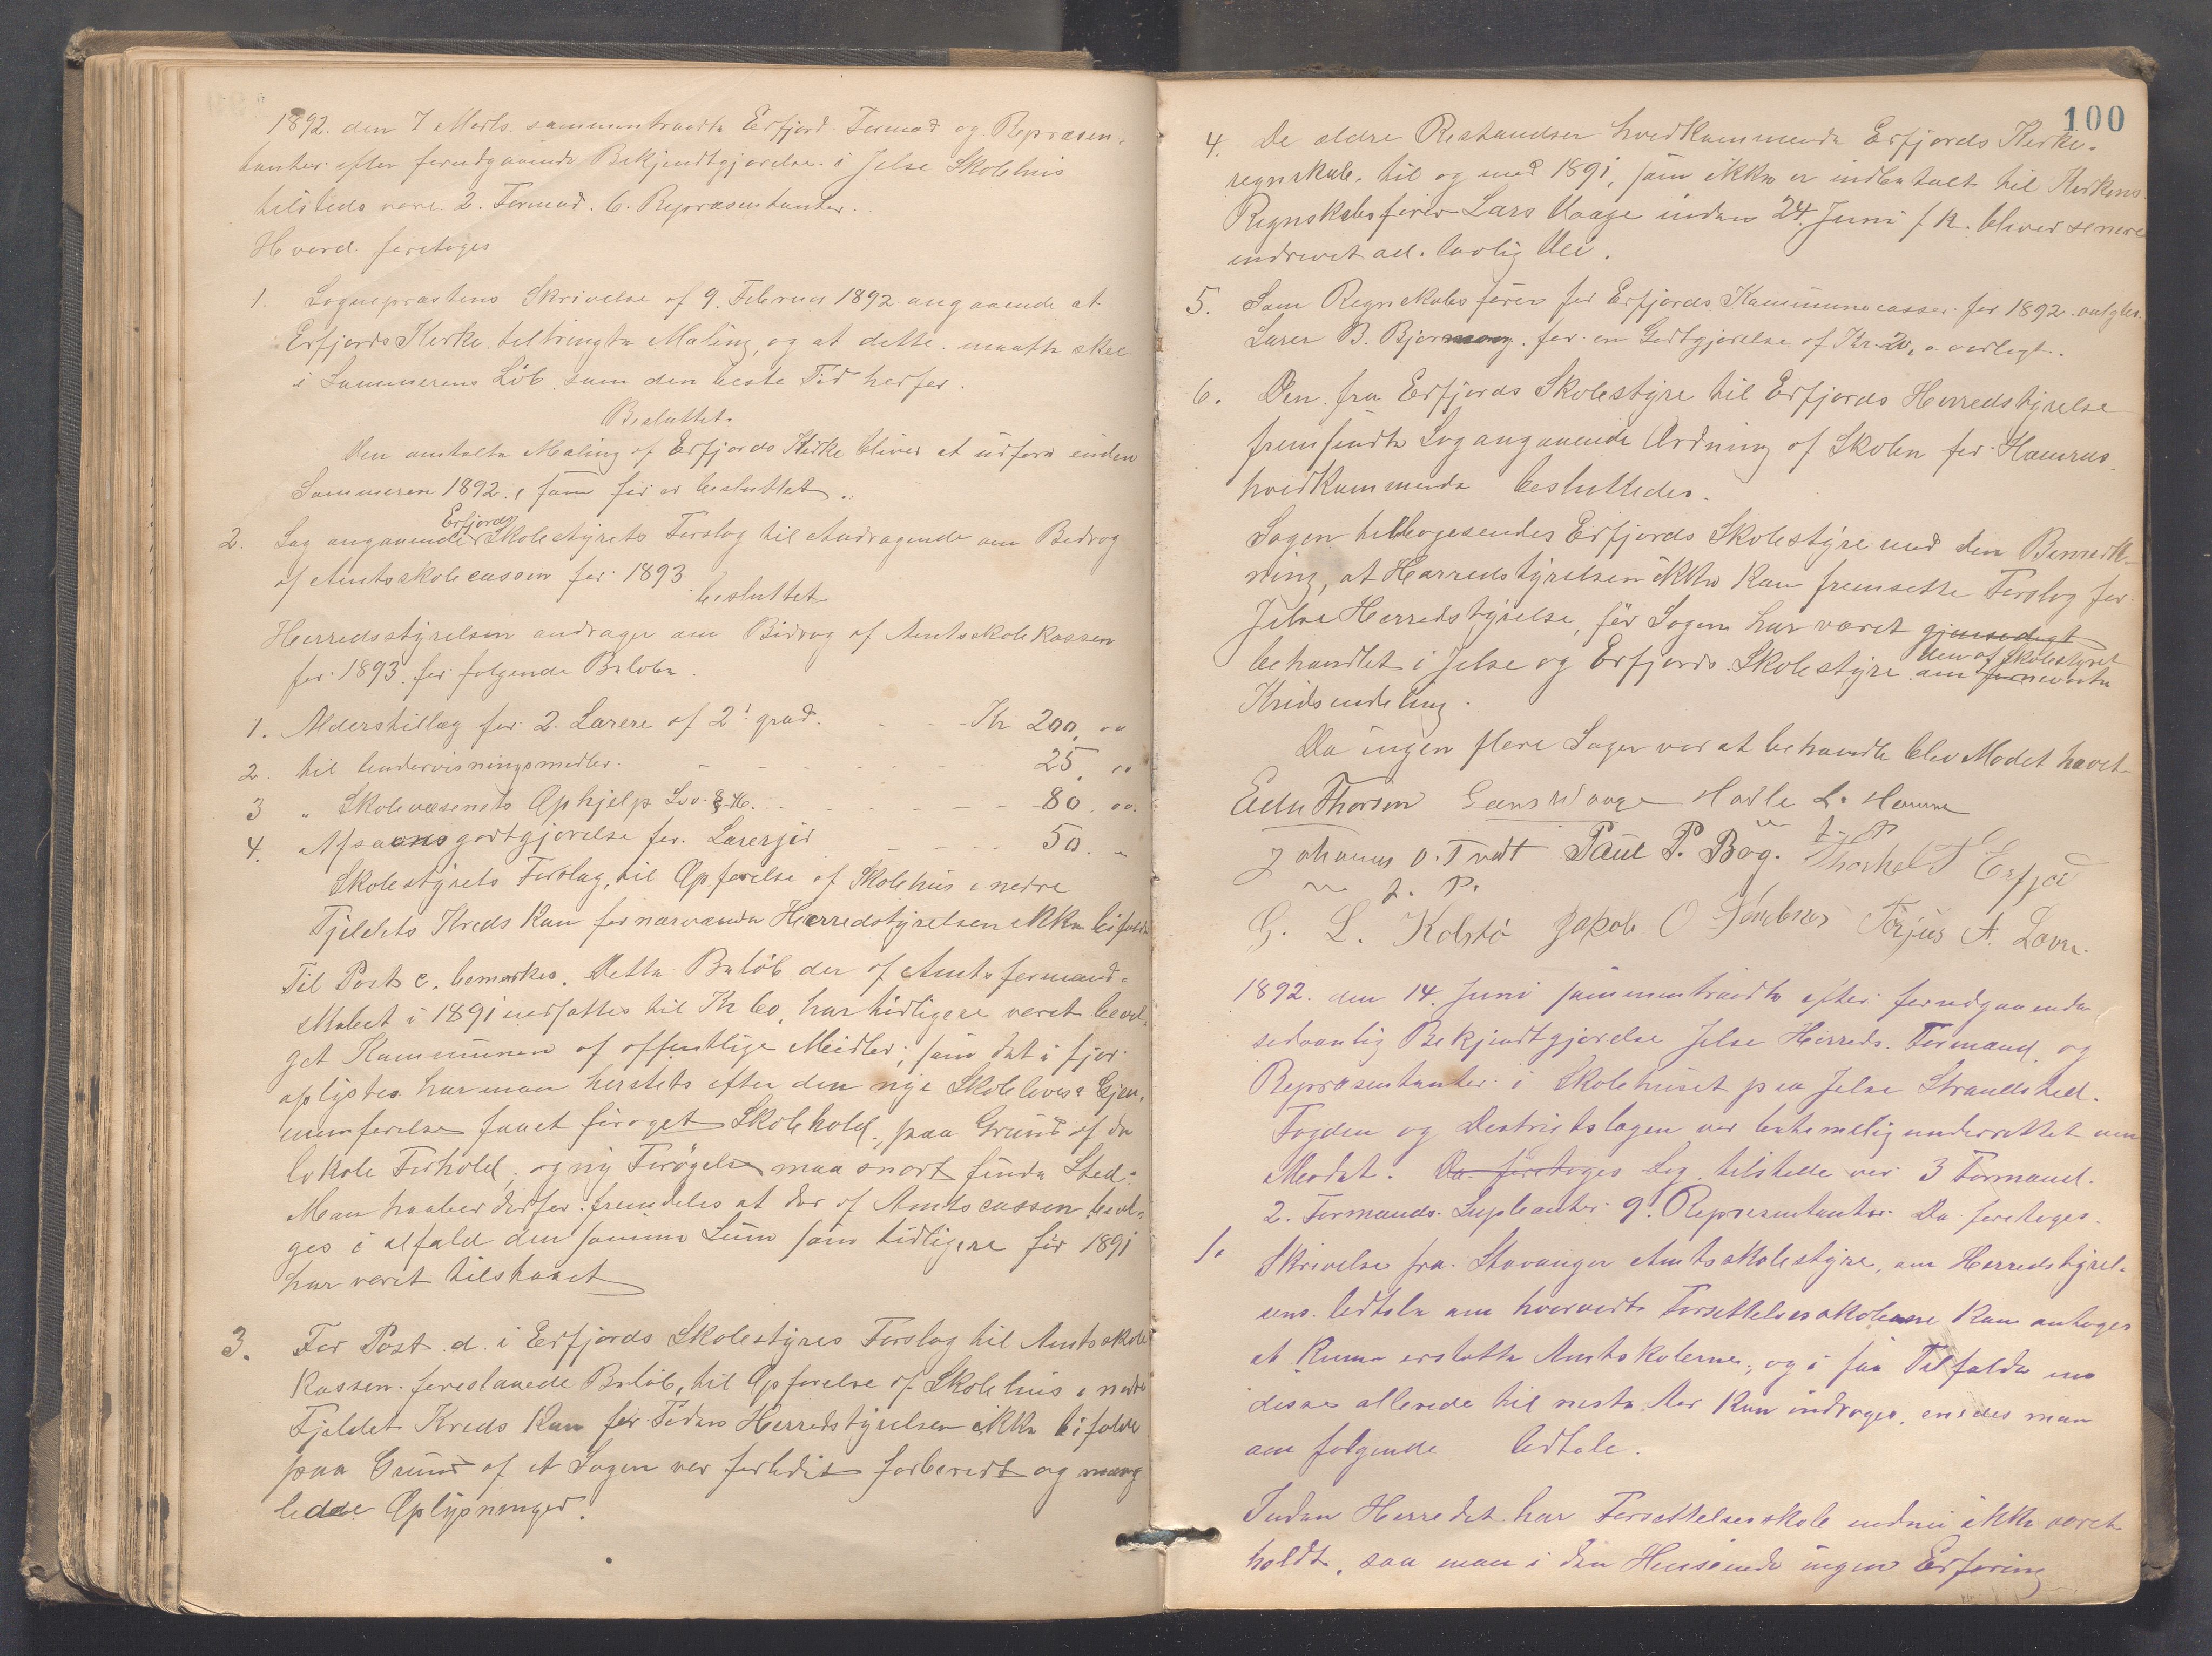 1892. den 7 Marts. sammentraadte Erfjord. Formæd og. Repræsen-
tanter. efter forudgaaende Bekjendtgjørelse. i Jelse Skolehus
tilstede vare. 2. Formæd. 6. Repræsentanter.
Hvord. foretoges
1. Sogneprestens Skrivelse af 9. Februar 1892 angaaende at
Erfjords Kirke. tiltrengte Maling, og at dette. maatte skee
i Sommerens Løb. som den beste Tid herfor.
Besluttet.
Den omtalte Maling af Erfjords Kirke bliver at udføre inden
Sommeren 1892. som før er besluttet.
2. Sag angaaende Erfjords Skolestyrets Forslag til Andragende om Bidrag
af Amtsskolecassen for 1893
besluttet
Herredsstyrelsen andrager om Bidrag af Amtsskole Kassen
for 1893. for følgende Beløbe.
1. Alderstillæg for 2. Lærere af 2! grad. - - Kr 200. oo
2. til Undervisningsmidler. - - - - 25. oo
3 " Skolevæsenets Ophjelp Lov. § - - - - 80. oo.
4. godtgjørelse for. Lærerjord - - - - 50. -
Skolestyrets Forslag, til Opførelse af Skolehus i nedre
Tjeldets Kreds Kan for nærværende Herredstyrelsen ikke bifalde
Til Post c. bemærkes. Dette Beløb der af Amtsformand-
Mødet i 1891 nedsattes til Kr 60. har tidligere været bevil-
get Kommunen af offentlige Meidler; som det i fjor
oplystes har man herstets efter den nye Skolelovs Gjen-
nemførelse faaet forøget Skolehold, paa Grund af de
lokale Forhold, og ny Forøgelse maa snart finde Sted.
Man haaber derfor. fremdeles at der af Amtscassen bevil-
ges i alfald den samme Sum som tidligere før 1891
har været tilstaaet
3. For Post. d. i Erfjords Skolestyres Forslag til Amtsskole
Kassen. foreslaaede Beløb, til Opførelse af Skolehus i nedre
Fjeldet Kreds Kan for Tiden Herredstyrelsen ikke bifalde
paa Grund af at Sagen var forlidet forberedt og mang
lede Oplysninger.
100
4. De ældre Restandser hvedkommende Erfjords Kirke-
regnskab. til og med 1891, som ikke er indbetalt til Kirkens
Regnskabsfører Lars Vaage inden 24. Juni f. K. bliver senere
indrevet ad. lovlig Vei.
5. Som Regnskabsfører for Erfjords Kommunecasser. for 1892. valgtes
Lærer B. for en Godtgjørelse af Kr. 20, o. vedlagt.
6. Den fra Erfjords Skolestyre til Erfjords Herredstyrelse
fremsendte Sag angaaende Ordning af Skolen for Hamrus
hvidkommende besluttedes.
Sagen tilbagesendes Erfjords Skolestyre med den Bemærk-
ning, at Herredstyrelsen ikke Kan fremsette Forslag for.
Jelse Herredstyrelse, før Sagen har været gjensidigt
behandlet i Jelse og Erfjords Skolestyre om den af Skolestyret fornevnte
Kredsindeling.
Da ingen flere Sager var at behandle blev Mødet hævet
Thorsen Lars Waage Halle L. Hamre
Johannes O. Tvedt Paul P. Bøg. Thorkel T Erfjord
m. f. P.
G. L. Kolstø Jakob O Torjus A. Lovra.
1892. den 14. Juni sammentraadte efter forudgaaende
sedvanlig Bekjendtgjørelse Jelse Herreds. Formænd. og
Repræsentanter. i Skolehuset paa Jelse Strandsted.
Fogden og Destriktslægen var betimelig underrettet om
Mødet. Da foretoges Sag. tilstede var 3 Formænd.
2. Formænds. Supleanter. 9. Repræsentanter. Da foretoges.
1. Skrivelse fra. Stavanger Amtsskolestyre, om Herredstyrel-
sens. Udtale om hvorvidt Forsettelsesskolerne Kan antages
at Kunne erstatte Amtskolerne, og i saa Tilfælde om
disse allerede til neste Aar Kan inddrages, enedes man
om følgende Udtale.
Inden Herredet har Forsettelsesskole endnu ikke været
holdt, saa man i den Henseende ingen Erfaring